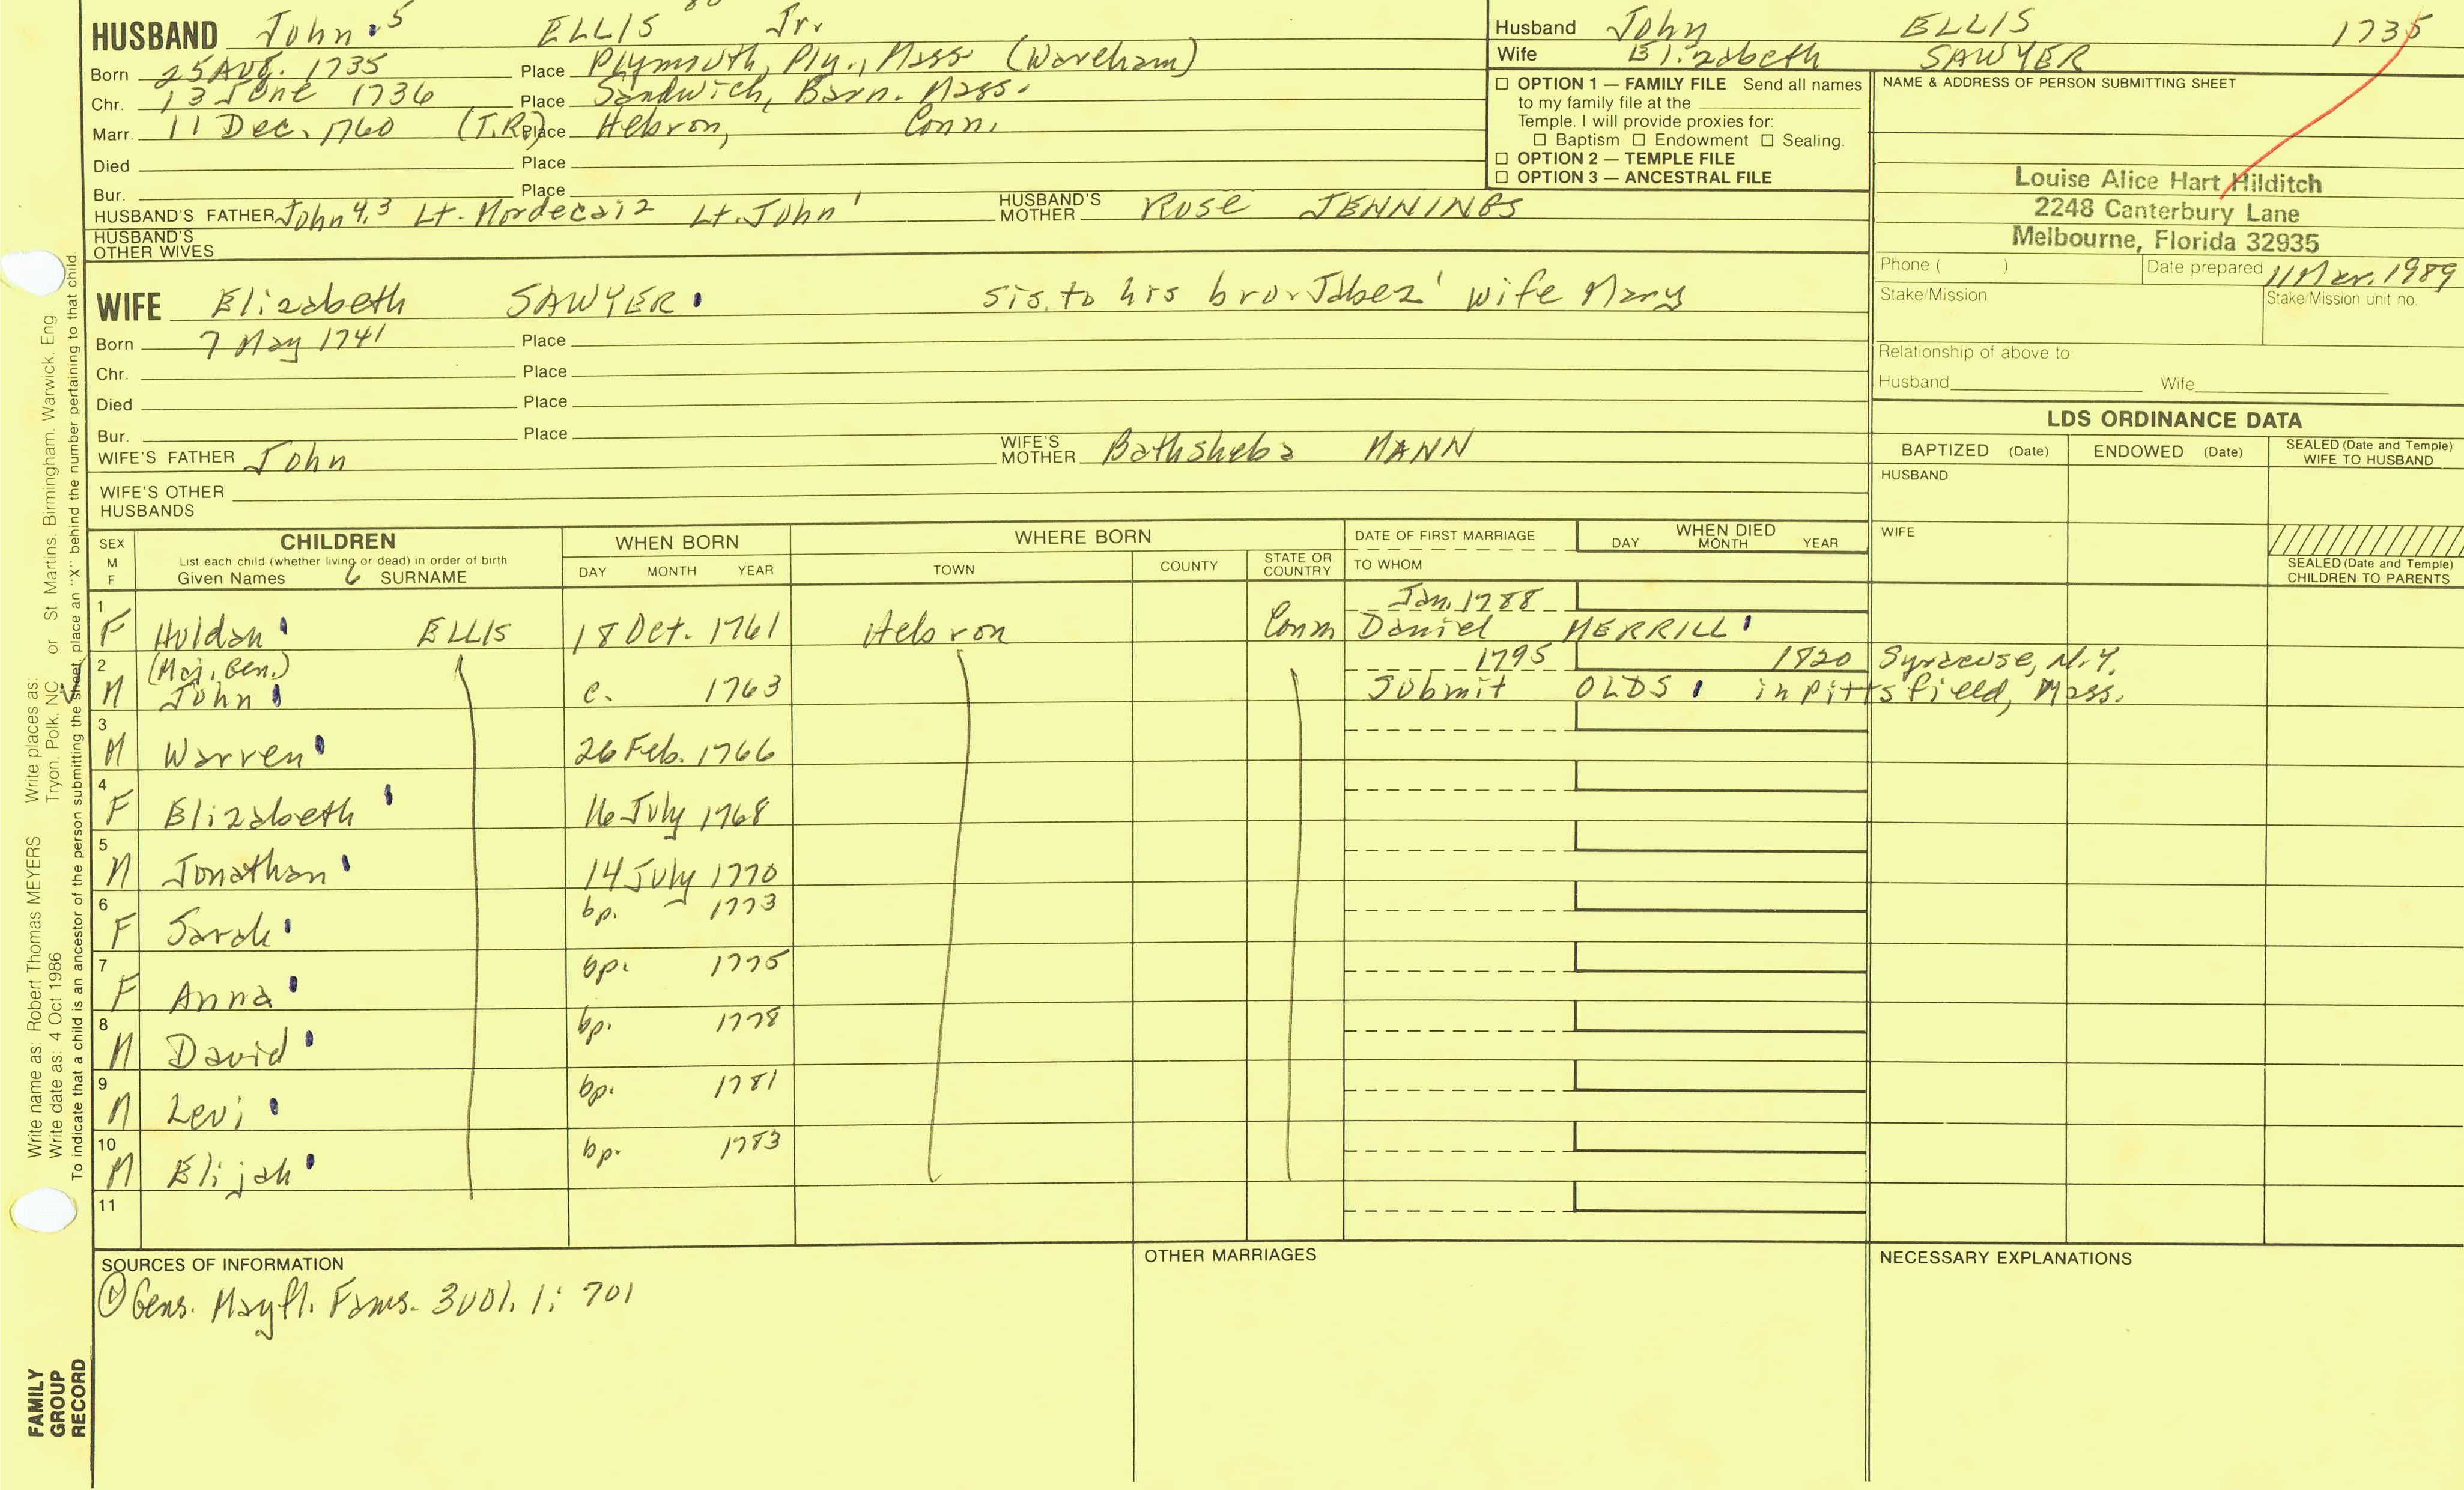 HUSBAND John 5 ELLIS Jr.
Born 25 Aug. 1735 Place Plymouth, Ply., Mass (Wareham)
Chr. 13 June 1736 Place Sandwich, Barn. Mass.
Marr. 11 Dec. 1760 (T.R.) Place Hebron, Conn.
Died Place
Bur. Place
HUSBAND'S FATHER John 4,3 Lt. Mordecai 2 Lt. John 1 HUSBAND'S MOTHER Rose JENNINGS
HUSBAND'S OTHER WIVES
WIFE Elizabeth SAWYER sis. to his bro. Jabez' wife Mary
Born 7 May 1741 Place
Chr. Place
Died Place
Bur. Place
WIFE'S FATHER John WIFE'S MOTHER Bathsheba MANN
WIFE'S OTHER HUSBANDS
Husband John ELLIS 1735
Wife Elizabeth SAWYER
☐ OPTION 1 — FAMILY FILE Send all names
to my family file at the
Temple. I will provide proxies for:
☐ Baptism ☐ Endowment ☐ Sealing.
☐ OPTION 2 — TEMPLE FILE
☐ OPTION 3 — ANCESTRAL FILE
NAME & ADDRESS OF PERSON SUBMITTING SHEET
Louise Alice Hart Hilditch
2248 Canterbury Lane
Melbourne, Florida 32935
Phone ( ) Date prepared 11 Mar. 1989
Stake/Mission Stake/Mission unit no.
Relationship of above to
Husband Wife
LDS ORDINANCE DATA
BAPTIZED (Date) ENDOWED (Date) SEALED (Date and Temple) WIFE TO HUSBAND
HUSBAND
WIFE
SEALED (Date and Temple)
CHILDREN TO PARENTS
SEX M F CHILDREN WHEN BORN WHERE BORN DATE OF FIRST MARRIAGE WHEN DIED
List each child (whether living or dead) in order of birth
Given Names SURNAME DAY MONTH YEAR TOWN COUNTY STATE OR COUNTRY TO WHOM DAY MONTH YEAR
1 Jan. 1788
F Huldah ELLIS 18 Oct. 1761 Hebron Conn Daniel MERRILL
2 (Maj. Gen.) 1795 1820 Syracuse, N.Y.
M John c. 1763 Submit OLDS in Pittsfield, Mass.
3 M Warren 26 Feb. 1766
4 F Elizabeth 16 July 1768
5 M Jonathan 14 July 1770
6 F Sarah bp. 1773
7 F Anna bp. 1775
8 M David bp. 1778
9 M Levi bp. 1781
10 M Elijah bp. 1783
11
SOURCES OF INFORMATION
① Gens. Mayfl. Fams. 3 vol. 1: 701
OTHER MARRIAGES
NECESSARY EXPLANATIONS
Write name as: Robert Thomas MEYERS Write places as:
Write date as: 4 Oct 1986 Tryon, Polk, NC or St. Martins, Birmingham, Warwick, Eng
To indicate that a child is an ancestor of the person submitting the sheet, place an "X" behind the number pertaining to that child.
FAMILY
GROUP
RECORD